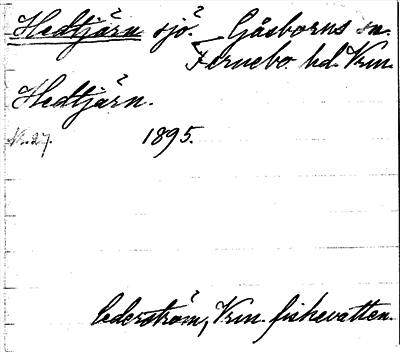 Hedtjärn sjö? Gåsborns sn.
Fernebo hd. Vrm.
Hedtjärn.
Nr. 27. 1895.
Cederström, Vrm. fiskevatten.